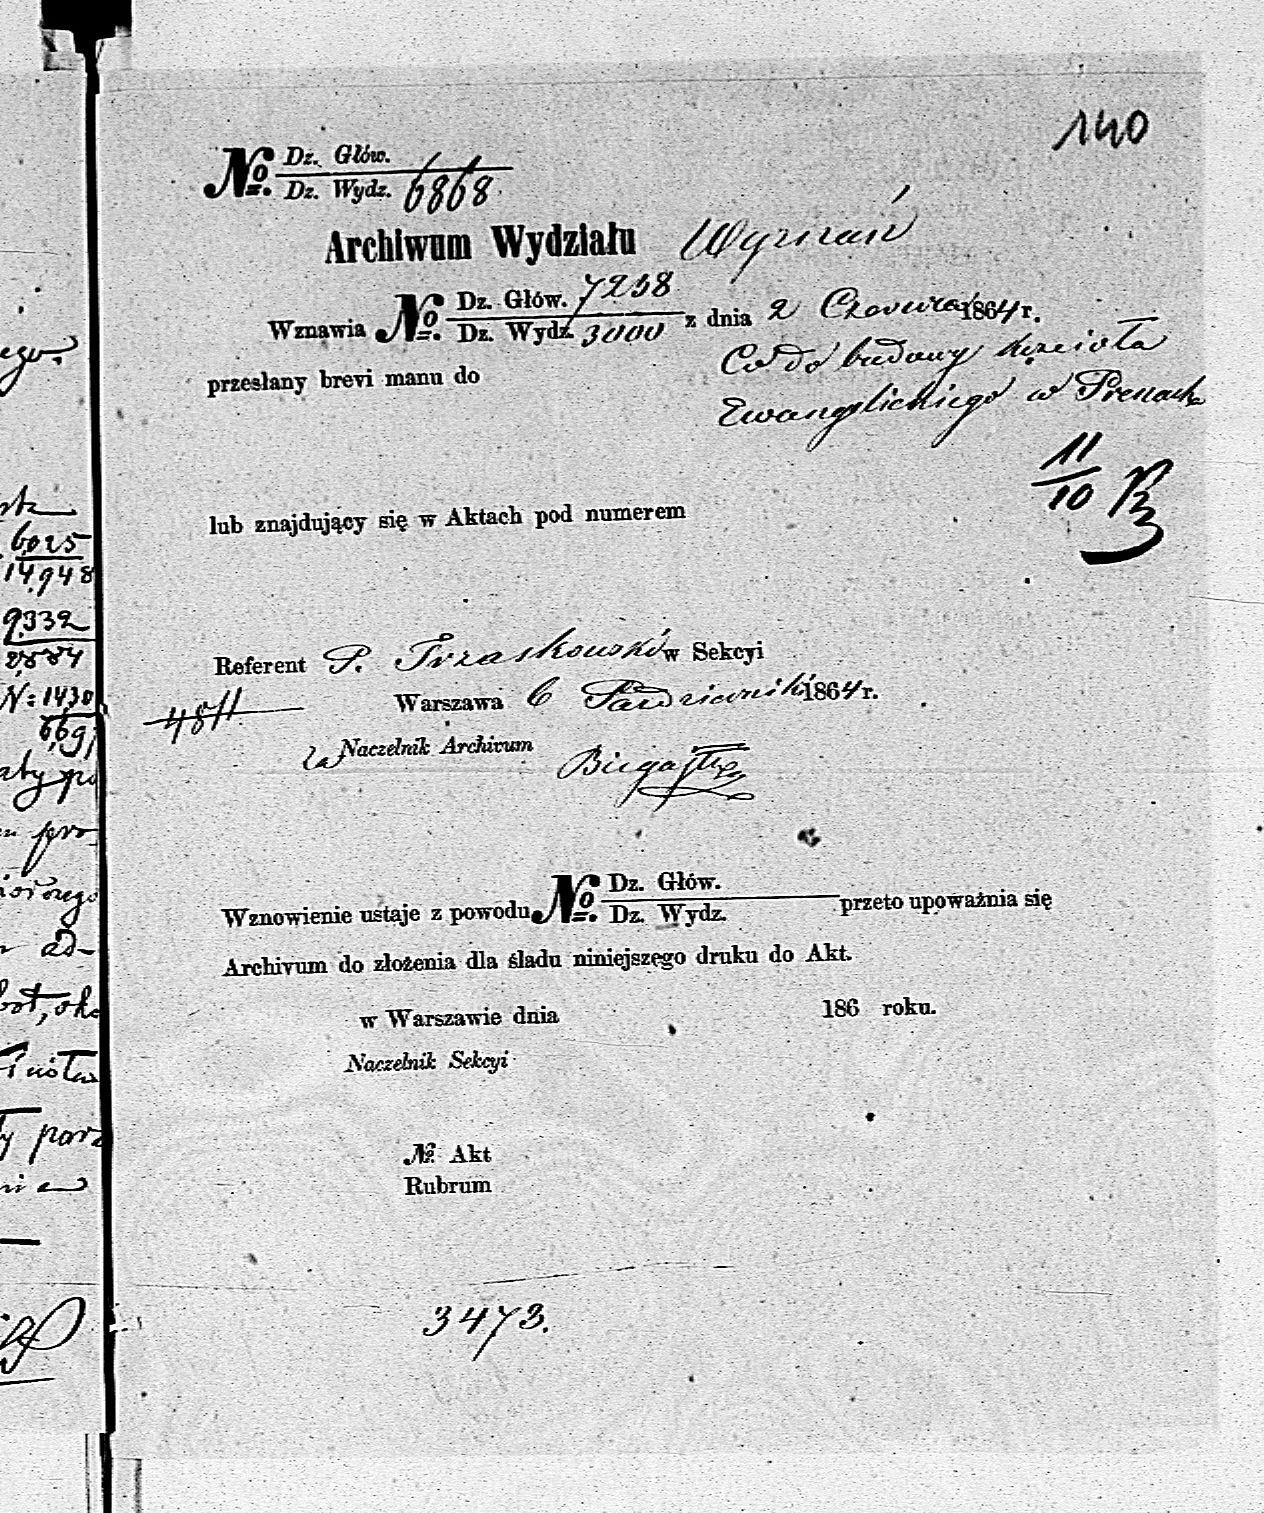 140
№ Dz. Głów.
Dz. Wydz. 6868
Archiwum Wydziału Wyznań
Wznawia № Dz. Głów. 7258 z dnia 2 Czerwca 1864 r.
Dz. Wydz. 3000
przesłany brevi manu do
Co do budowy kościoła
Ewangelickiego w Prenach
11
10
lub znajdujący się w Aktach pod numerem
Referent P. Trzaskowski w Sekcyi
Warszawa 6 Październik 1864 r.
48
za Naczelnik Archivum
Wznowienie ustaje z powodu № Dz. Głów. przeto upoważnia się
Dz. Wydz.
Archivum do złożenia dla śladu niniejszego druku do Akt.
w Warszawie dnia 186 roku.
Naczelnik Sekcyi
№ Akt
Rubrum
3473.
6025
14,948
9332
N: 1430